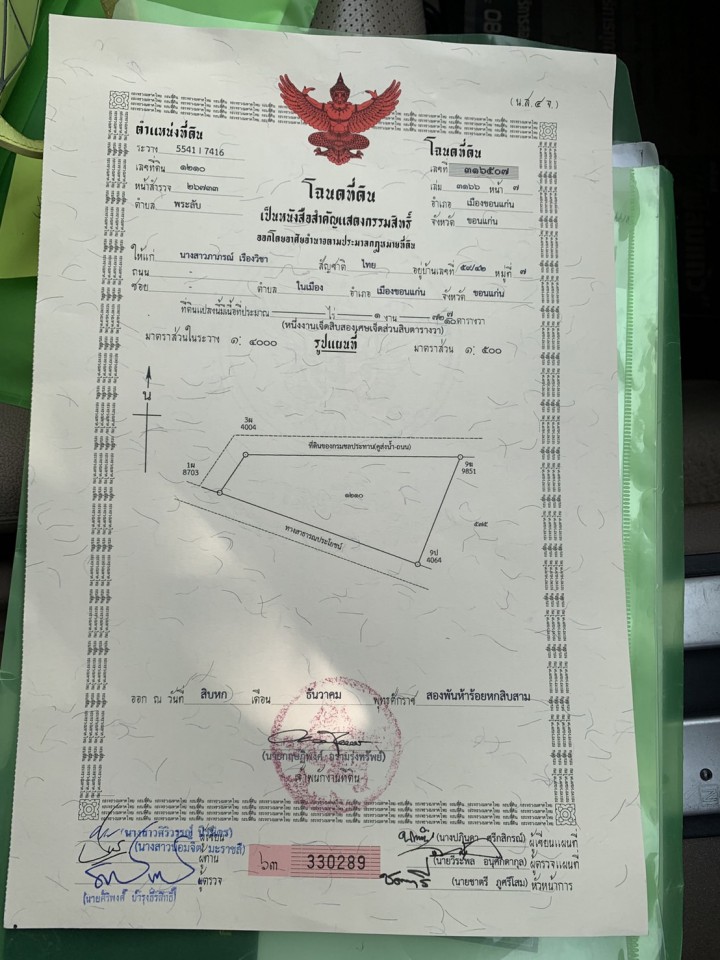 (น.ส.๔ จ.)
ตำแหน่งที่ดิน
ระวาง 5541 I 7416
เลขที่ดิน ๑๒๑๐
หน้าสำรวจ ๒๖๗๓๓
ตำบล พระลับ
โฉนดที่ดิน
เลขที่ ๓๑๖๕๐๗
เล่ม ๓๑๖๖ หน้า ๗
อำเภอ เมืองขอนแก่น
จังหวัด ขอนแก่น
โฉนดที่ดิน
เป็นหนังสือสำคัญแสดงกรรมสิทธิ์
ออกโดยอาศัยอำนาจตามประมวลกฎหมายที่ดิน
ให้แก่ นางสาวภาภรณ์ เรืองวิชา สัญชาติ ไทย อยู่บ้านเลขที่ ๕๙/๔๒ หมู่ที่ ๗
ถนน - ซอย - ตำบล ในเมือง อำเภอ เมืองขอนแก่น จังหวัด ขอนแก่น
ที่ดินแปลงนี้มีเนื้อที่ประมาณ - ไร่ ๑ งาน ๗๒ ๗/๑๐ ตารางวา
(หนึ่งงานเจ็ดสิบสองเศษเจ็ดส่วนสิบตารางวา)
มาตราส่วนในระวาง ๑: ๔๐๐๐ รูปแผนที่ มาตราส่วน ๑: ๕๐๐
น
3ผ
4004
ที่ดินของกรมชลประทาน(คูส่งน้ำ-ถนน)
1ผ
8703
9ฆ
9851
๑๒๑๐
๕๗๕
ทางสาธารณประโยชน์
9ป
4064
ออก ณ วันที่ สิบหก เดือน ธันวาคม พุทธศักราช สองพันห้าร้อยหกสิบสาม
เจ้าพนักงานที่ดิน
ผู้เขียน
(นางสาวน้อมจิต มะราชลี)
ผู้ทาน
ผู้ตรวจ
๖๓ 330289
ผู้เขียนแผนที่
ผู้ตรวจแผนที่
(นายชาตรี ภูศรีโสม) หัวหน้าการ